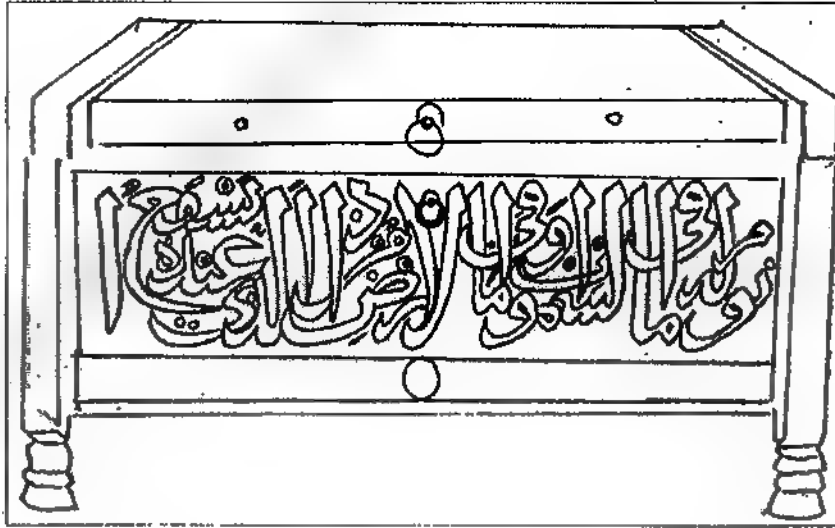 نوم له ما في السموات وما في الارض من ذا الذي يشفع عنده ا